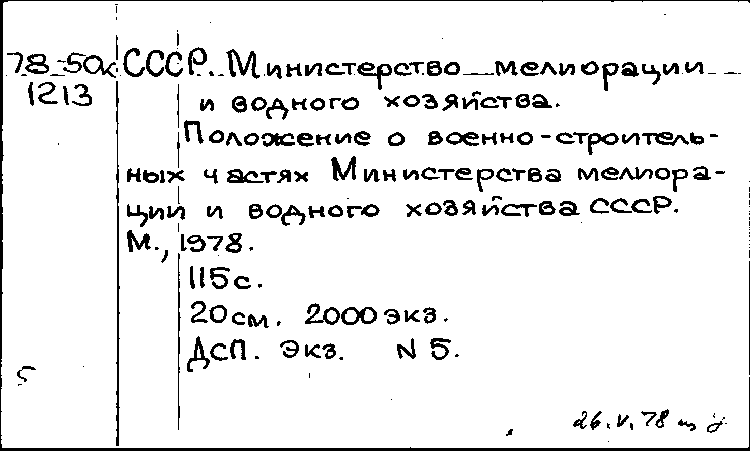 78-50к СССР. Министерство мелиорации
1213 и водного хозяйства.
Положение о военно-строитель-
ных частях Министерства мелиора-
ции и водного хозяйства СССР.
М., 1978.
115 с.
20 см. 2000 экз.
ДСП. Экз. N 5.
5
26.V.78